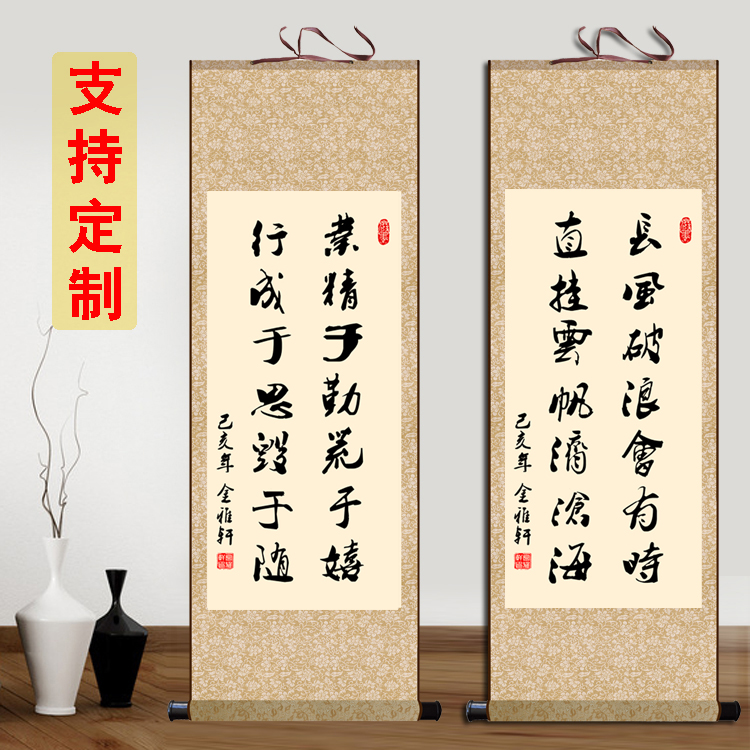 支持定制
業精于勤荒于嬉
行成于思毀于随
己亥年 金雅轩
長風破浪會有時
直挂雲帆濟滄海
己亥年 金雅轩